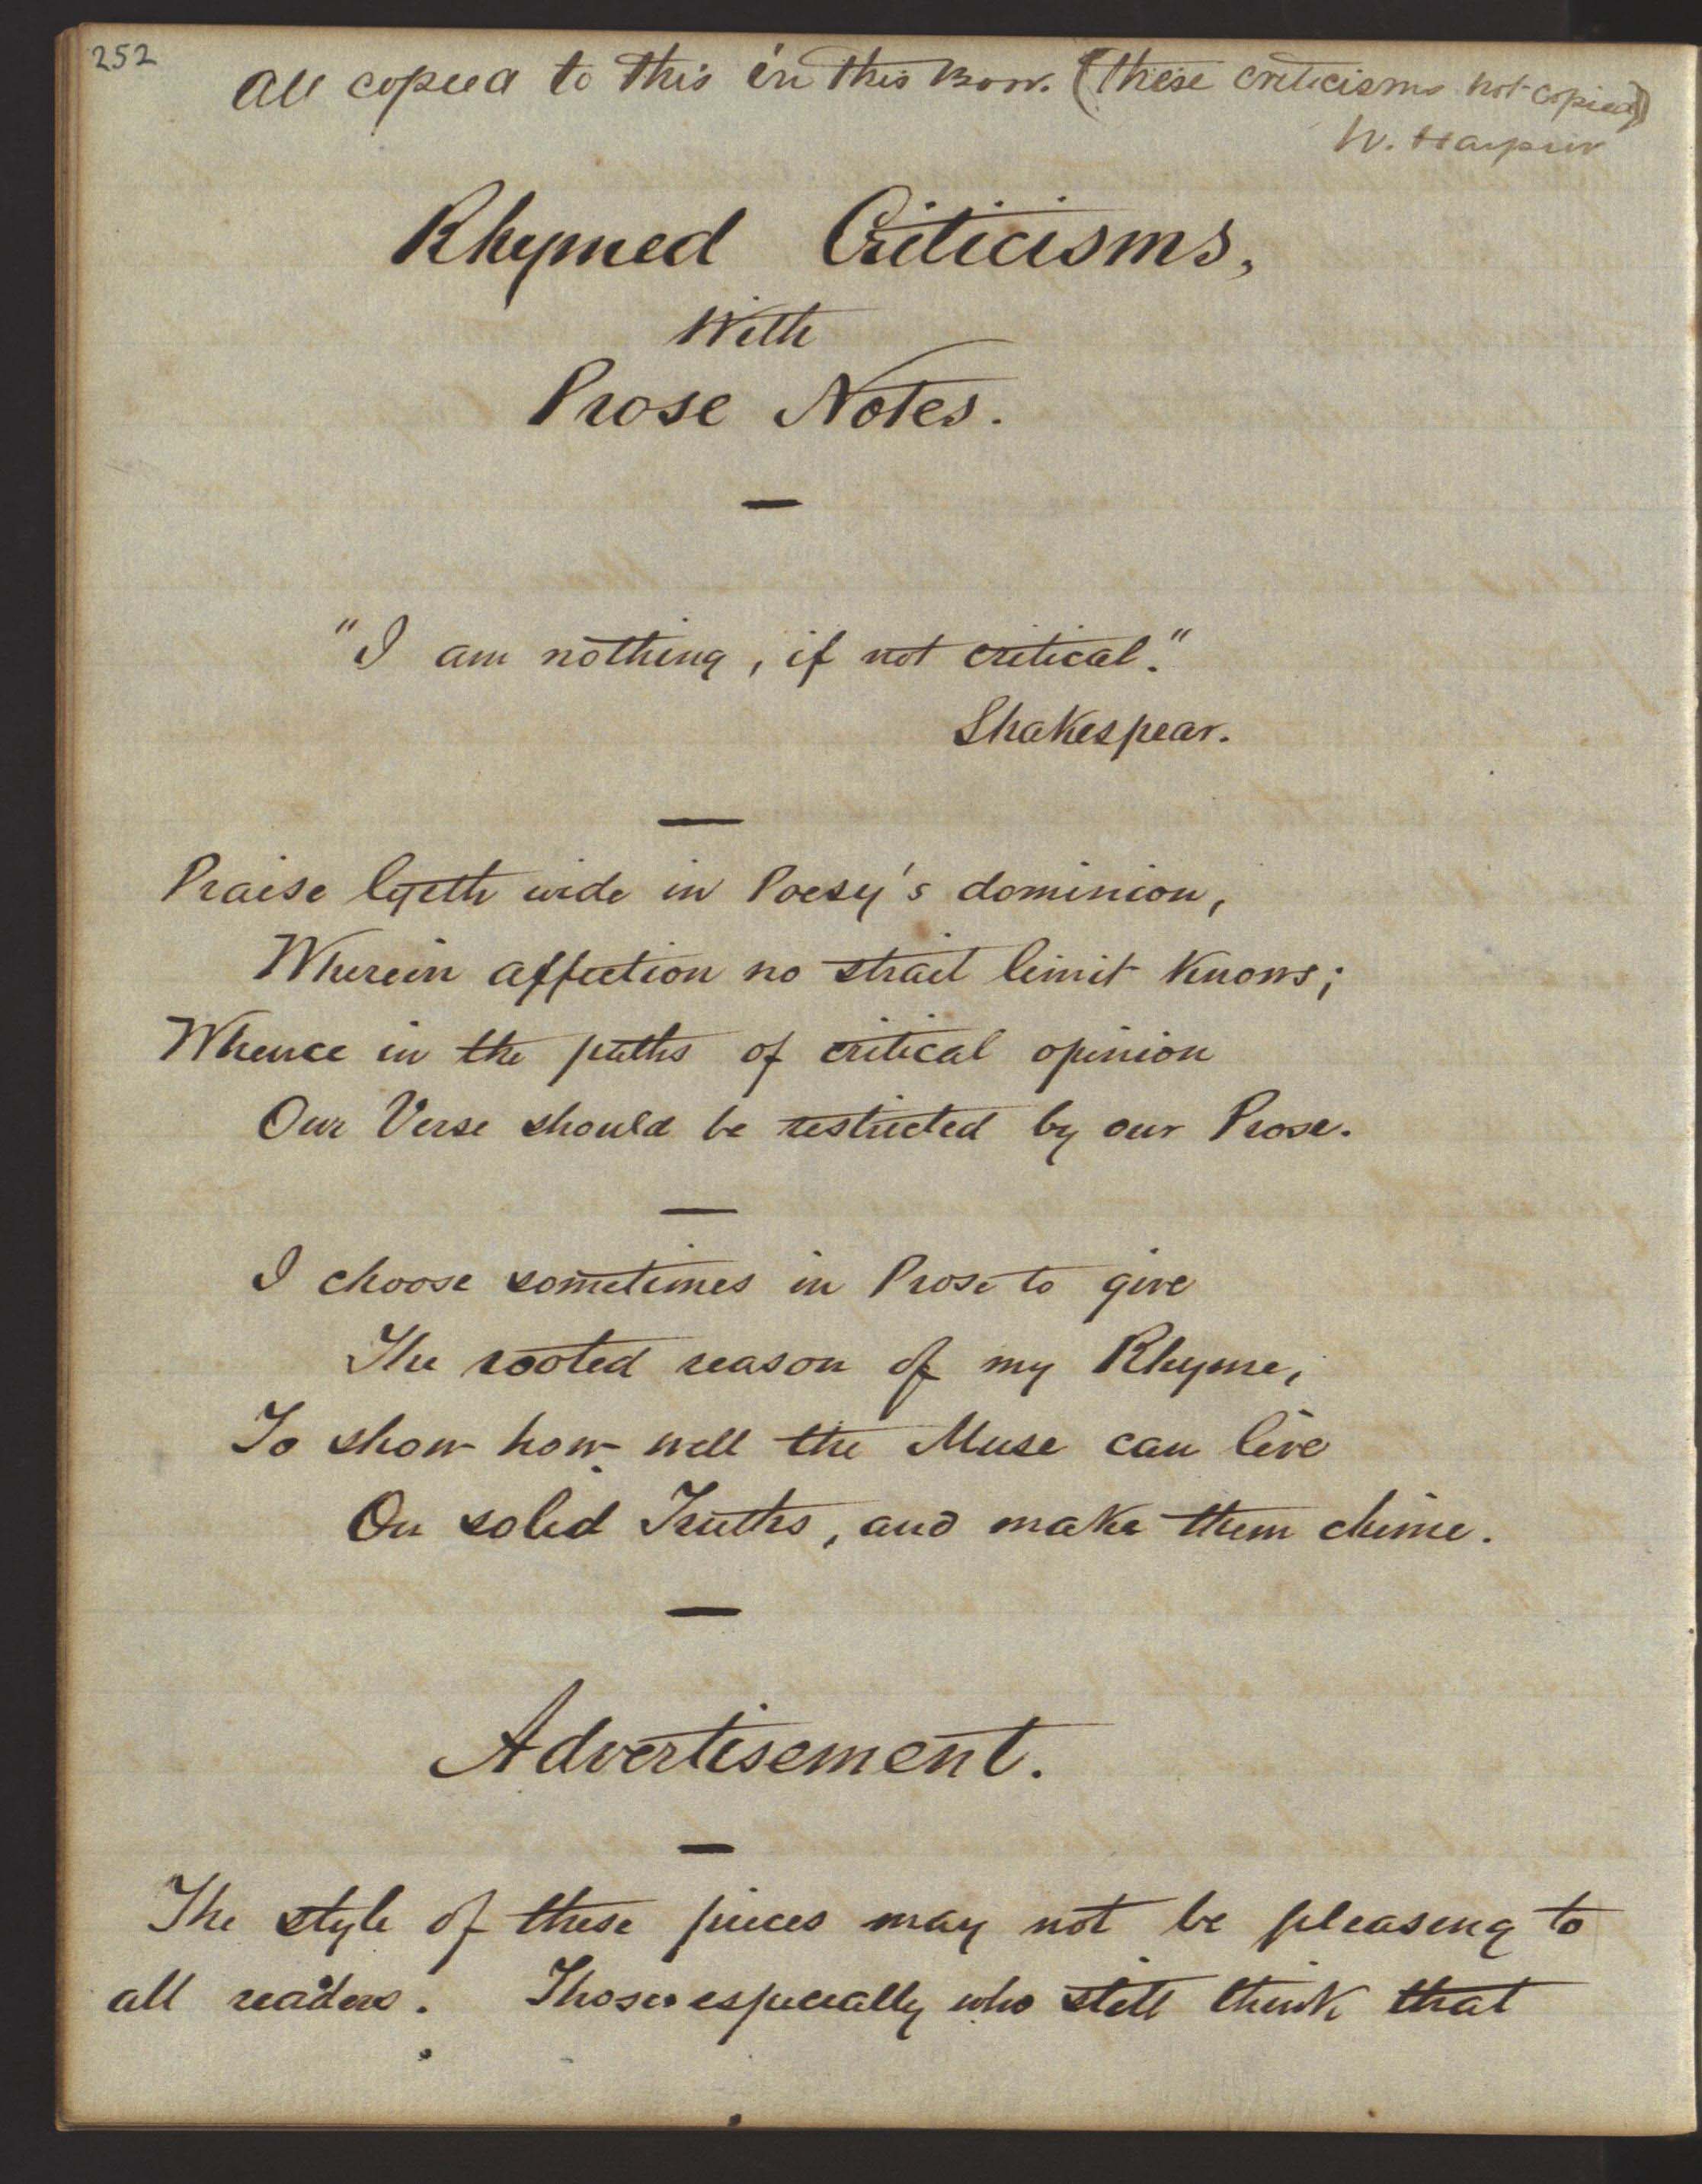 252
All copied to this in this Book. (These criticisms not copied)
W. Harpur
Rhymed Criticisms,
With
Prose Notes.
"I am nothing, if not critical."
Shakespear.
Praise lyeth wide in Poesy's dominion,
Wherein affection no strait limit knows;
Whence in the paths of critical opinion
Our Verse should be restricted by our Prose.
I choose sometimes in Prose to give
The rooted reason of my Rhyme,
To show how well the Muse can live
On solid Truths, and make them chime.
Advertisement.
The style of these pieces may not be pleasing to
all readers. Those especially who still think that